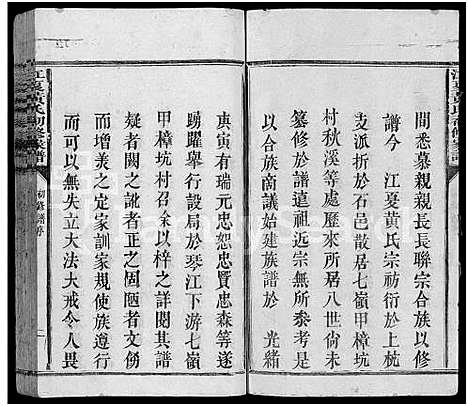 江夏黃氏初修家譜
間悉慕親親長長聯宗合族以修
譜今 江夏黃氏宗祊衍於上杭
支派折於石邑散居七嶺甲樟坑
村秋溪等處歷來所居八世尙未
簒修於譜遠祖近宗無所黍考是
以合族商議始建族譜於 光緒
庚寅有瑞元忠恕忠賢忠森等遂
踴躍舉行設局於琴江下游七嶺
甲樟坑村召余以梓之詳閱其譜
疑者闕之訛者正之固陋者文傍
而增美之定家訓家規使族遵行
而可以無失立大法大戒令人畏
江夏黃氏初修家譜
初修譜序
二